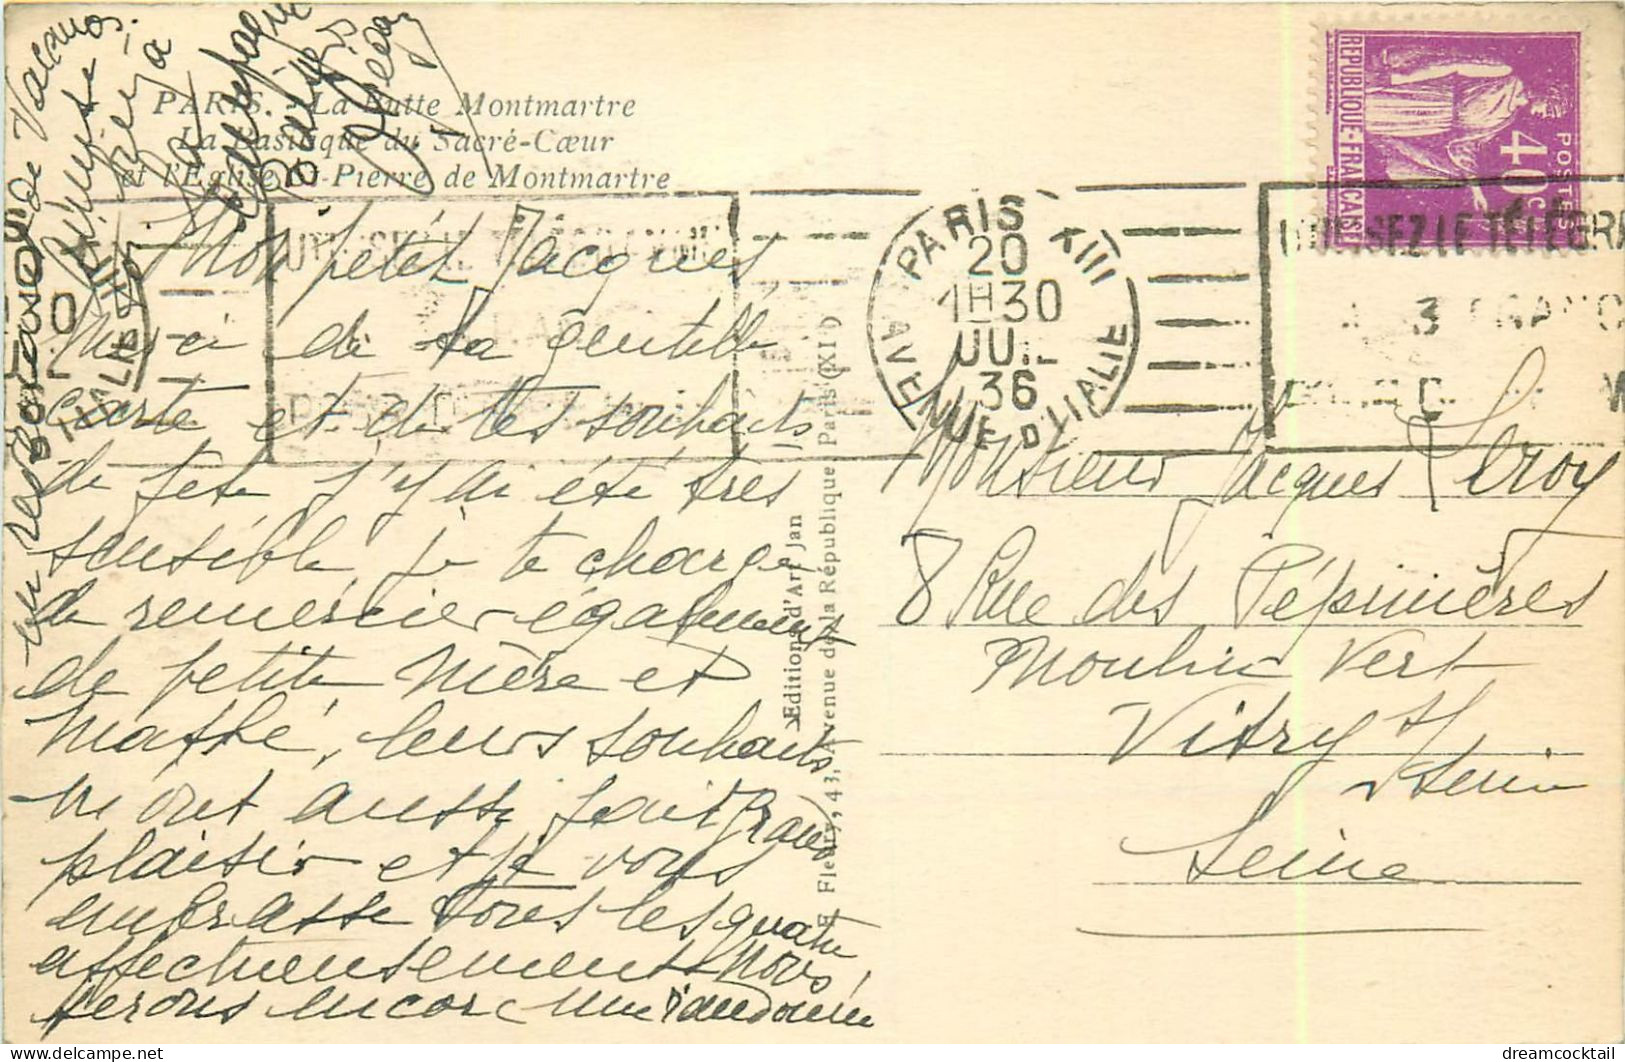 PARIS. - La Butte Montmartre
La Basilique du Sacré-Cœur
et l'Eglise St-Pierre de Montmartre
Mon petit Jacques
Merci de ta gentille
carte et de tes souhaits
de fête j'y ai été très
sensible, je te charge
de remercier également
de petite mère et
leurs souhaits
m'ont aussi fait grand
plaisir et je vous
embrasse tous les quatre
affectueusement Nous
ferons encor une
de Vacances.
Baisers
Editions d'Art Jan
E. Fleury, 43, Avenue de la République, Paris (XIe)
REPUBLIQUE-FRANÇAISE
POSTES
40c
PARIS XIII
20
1H30
JUIL
36
AVENUE D'ITALIE
UTILISEZ LE TELEGRA
3 FRANC
Monsieur Jacques Leroy
8 Rue des Pépinières
Moulin Vert
Vitry s/
Seine
Seine
dreamcocktail
delcampe.net